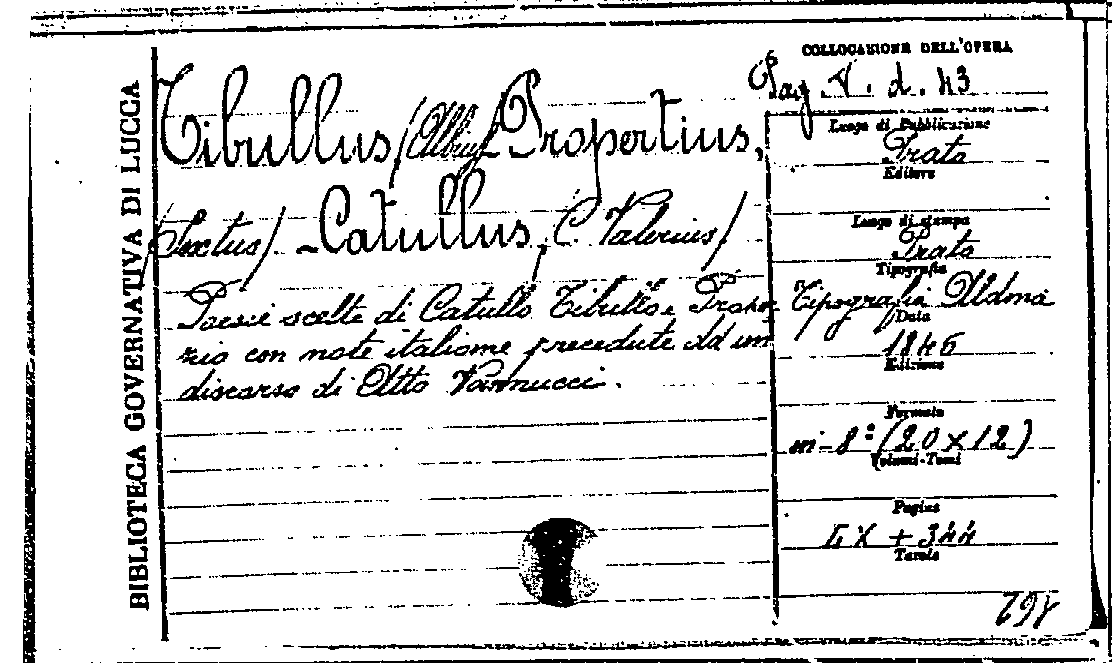 BIBLIOTECA GOVERNATIVA DI LUCCA
Tibullus (Albius) Propertius,
(Sextus) - Catullus, C. Valerius)
Poesie scelte di Catullo Tibullo e Proper-
zio con note italiane precedute da un
discorso di Atto Vannucci.
COLLOCAZIONE DELL'OPERA
Pag V. d. 43
Luogo di Pubblicazione
Prato
Editore
Luogo di stampa
Prato
Tipografia
Tipografia Aldina
Data
1846
Edizione
Formato
in-8º (20 x 12)
Volumi-Tomi
Pagine
LX + 344
Tavole